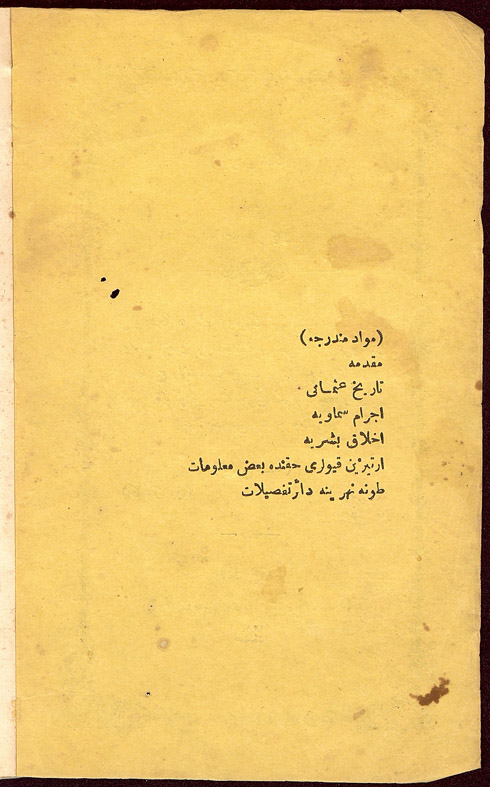 (مواد مندرجه)
مقدمه
تاريخ عثمانى
اجرام سماويه
اخلاق بشريه
ارتيزين قيولرى حقنده بعض معلومات
طونه نهرينه دائر تفصيلات